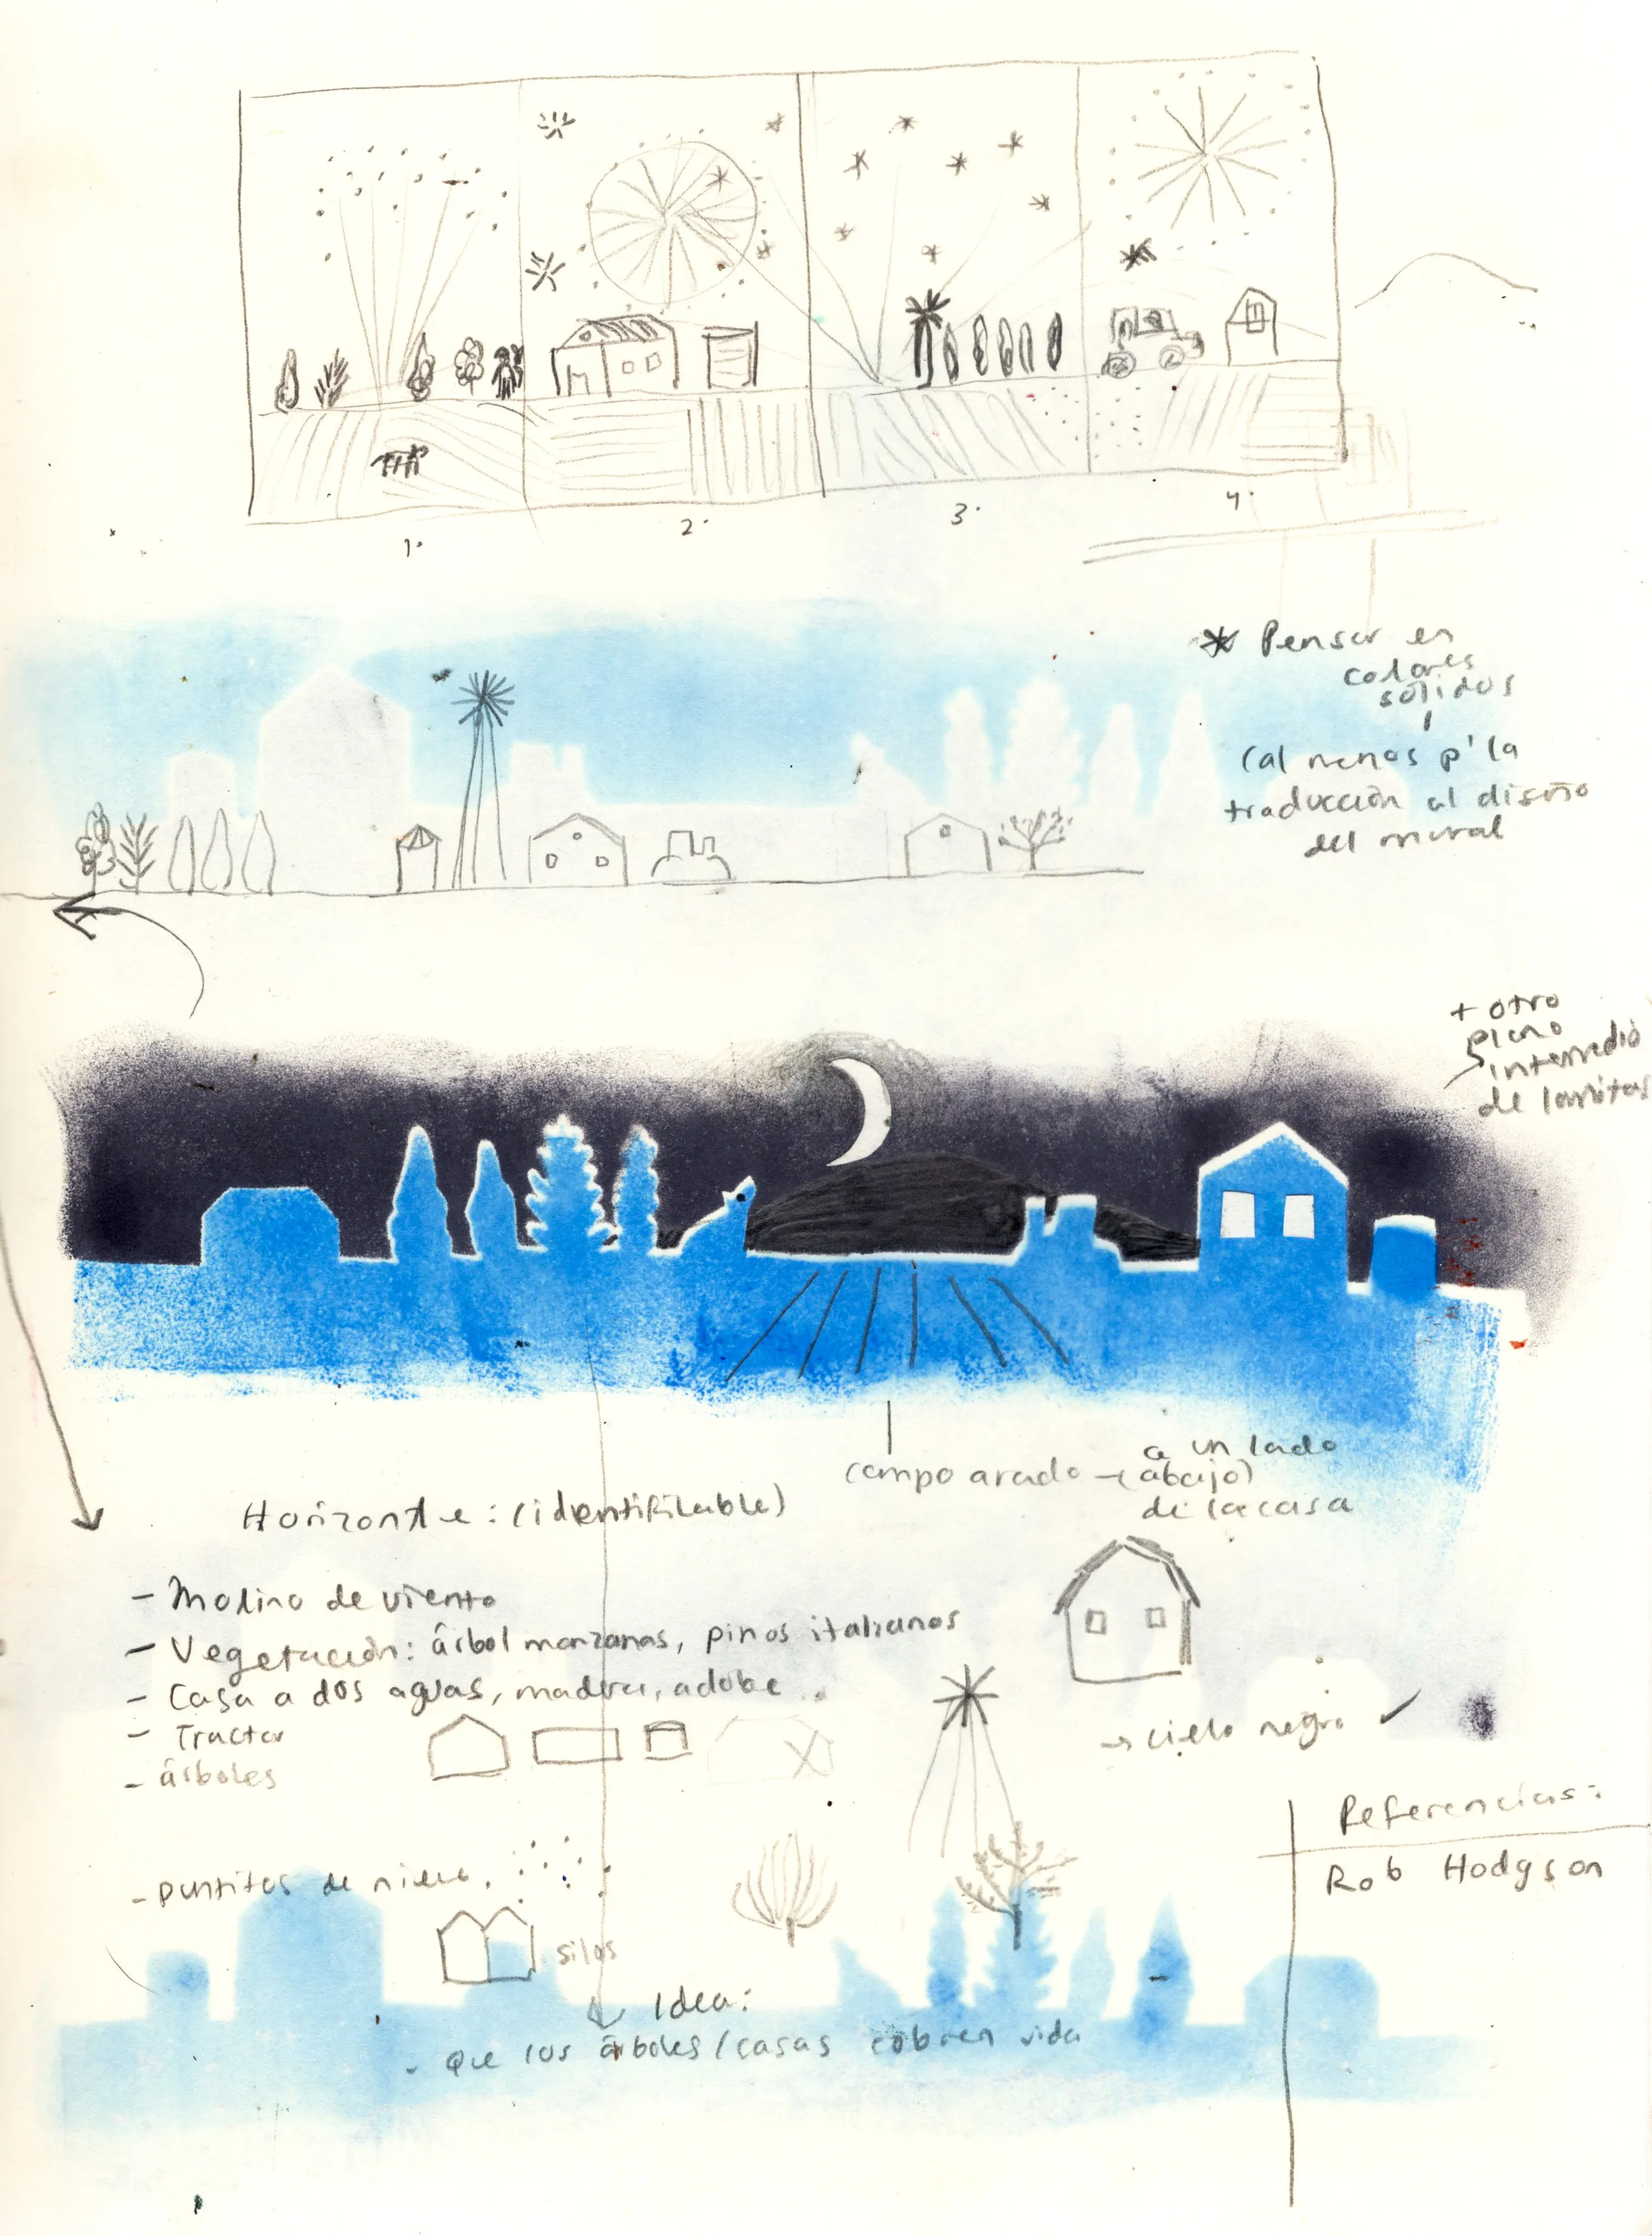 1.
2.
3.
4.
* Pensar en
colores
sólidos
(al menos p' la
traducción al diseño
del mural
+ otro
plano
intermedio
de lomitas
campo arado - (a un lado
abajo)
de la casa
Horizonte: (identificable)
- Molino de viento
- Vegetación: árbol manzanas, pinos italianos
- Casa a dos aguas, madera, adobe
- Tractor
- árboles
→ cielo negro ✓
- puntitos de nieve.
silos
Referencias:
Rob Hodgson
Idea:
- Que los árboles / casas cobren vida